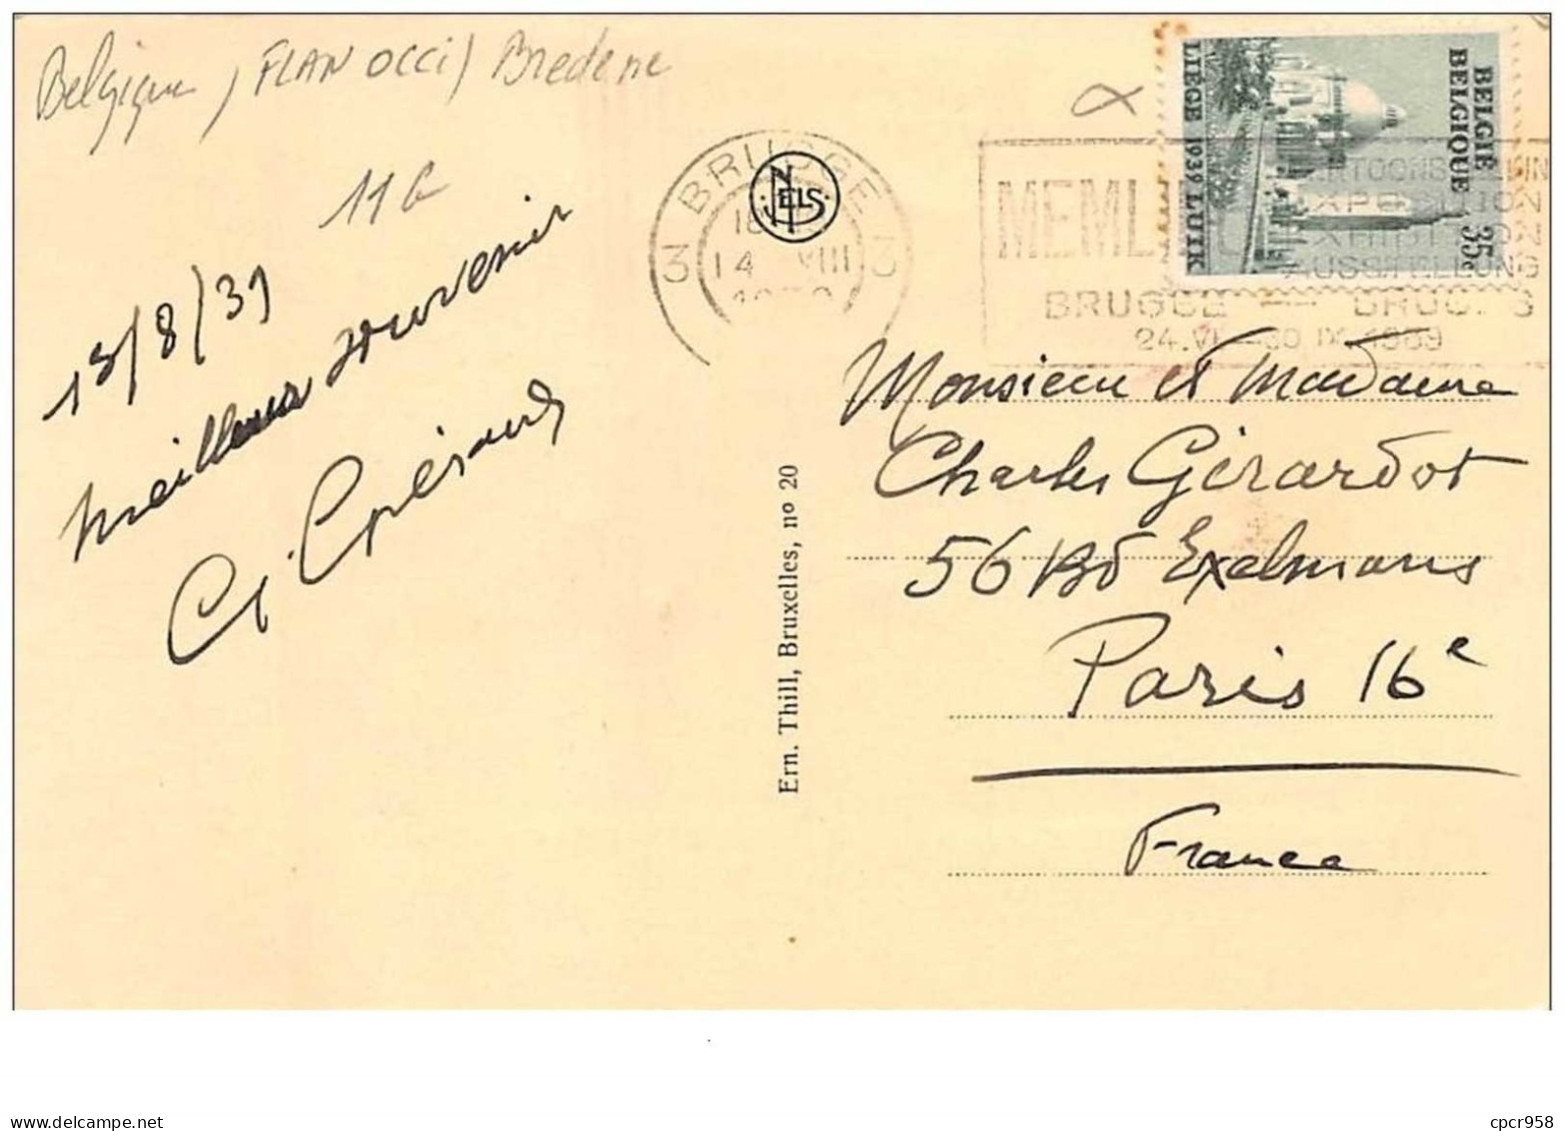 Belgique / FLAN OCCI / Bredene
11 G
13/8/39
meilleur souvenir
G. Guérard
BRUGGE
3 3
18
14 VIII
NELS
BELGIE
BELGIQUE
35c
LIEGE 1939 LUIK
MEML
EXPOSITION
EXHIBITION
AUSSTELLUNG
BRUGGE — BRUGES
24.VI - 30 IX 1939
Monsieur et Madame
Charles Girardot
56 Bd Exelmans
Paris 16e
France
Ern. Thill, Bruxelles, nº 20
cpcr958